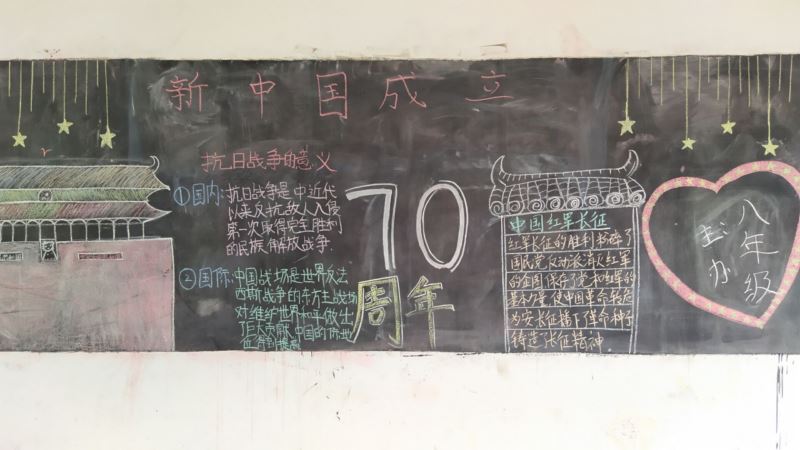 新中国成立
70
周年
抗日战争的意义
①国内:抗日战争是中近代
以来反抗敌人入侵
第一次取得完全胜利
的民族解放战争.
②国际:中国战场是世界反法
西斯战争的东方主战场
对维护世界和平做出
了巨大贡献,中国的际地
中国红军长征
红军长征的胜利粉碎了
国民党反动派消灭红军
的企图保存了党和红军的
基本力量,使中国革命转危
为安长征播下了革命种子
铸造长征精神.
八年级
主办